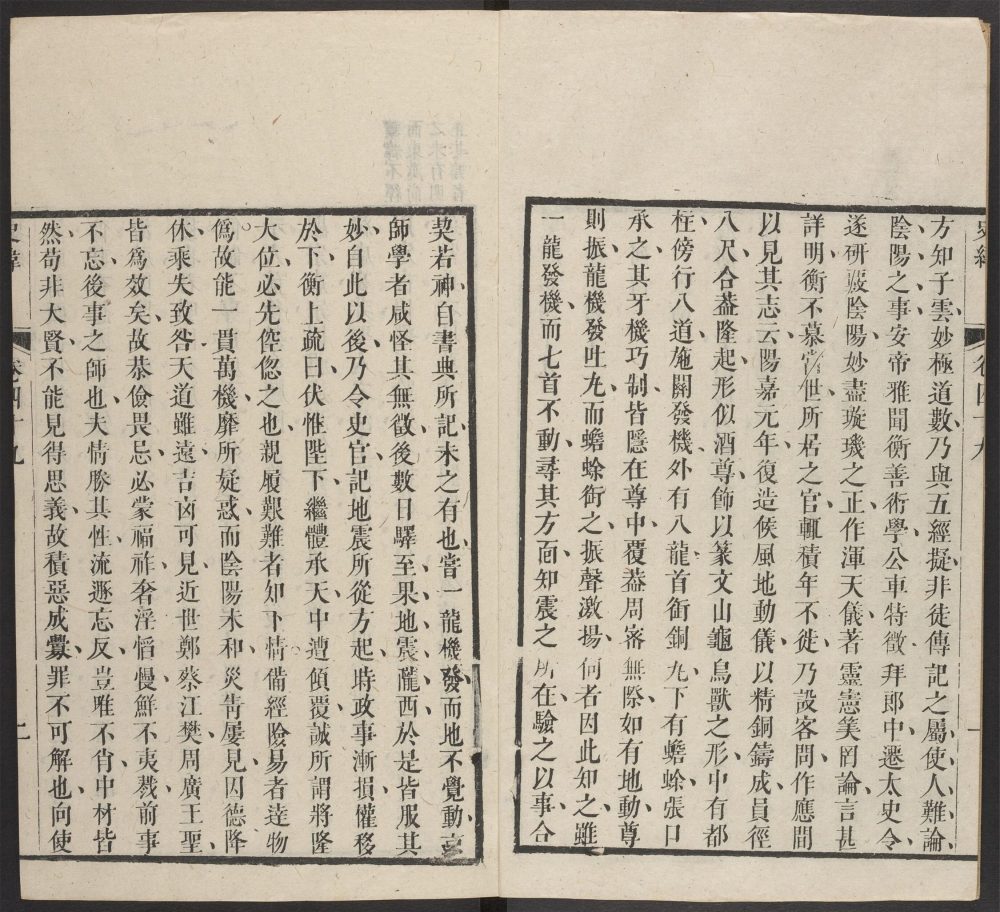 方知子雲妙極道數乃與五經擬非徒傳記之屬使人難論
陰陽之事安帝雅聞衡善術學公車特徵拜郎中遷太史令
遂研覈陰陽妙盡璇璣之正作渾天儀著靈憲筭罔論言甚
詳明衡不慕當世所居之官輒積年不徙乃設客問作應閒
以見其志云陽嘉元年復造候風地動儀以精銅鑄成員徑
八尺合蓋隆起形似酒尊飾以篆文山龜鳥獸之形中有都
柱傍行八道施關發機外有八龍首銜銅丸下有蟾蜍張口
承之其牙機巧制皆隱在尊中覆蓋周密無際如有地動尊
則振龍機發吐丸而蟾蜍銜之振聲激揚伺者因此知之雖
一龍發機而七首不動尋其方面知震之所在驗之以事合
契若神自書典所記未之有也嘗一龍機發而地不覺動京
師學者咸怪其無徵後數日驛至果地震隴西於是皆服其
妙自此以後乃令史官記地震所從方起時政事漸損權移
於下衡上疏曰伏惟陛下繼體承天中遭傾覆誠所謂將隆
大位必先倥傯之也親履艱難者知下情備經險易者達物
僞故能一貫萬機靡所疑惑而陰陽未和災眚屢見因德降
休乘失致咎天道雖遠吉凶可見近世鄭蔡江樊周廣王聖
皆爲效矣故恭儉畏忌必蒙福祚奢淫慆慢鮮不夷戮前事
不忘後事之師也夫情勝其性流遯忘反豈唯不肖中材皆
然苟非大賢不能見得思義故積惡成釁罪不可解也向使
卷四十九